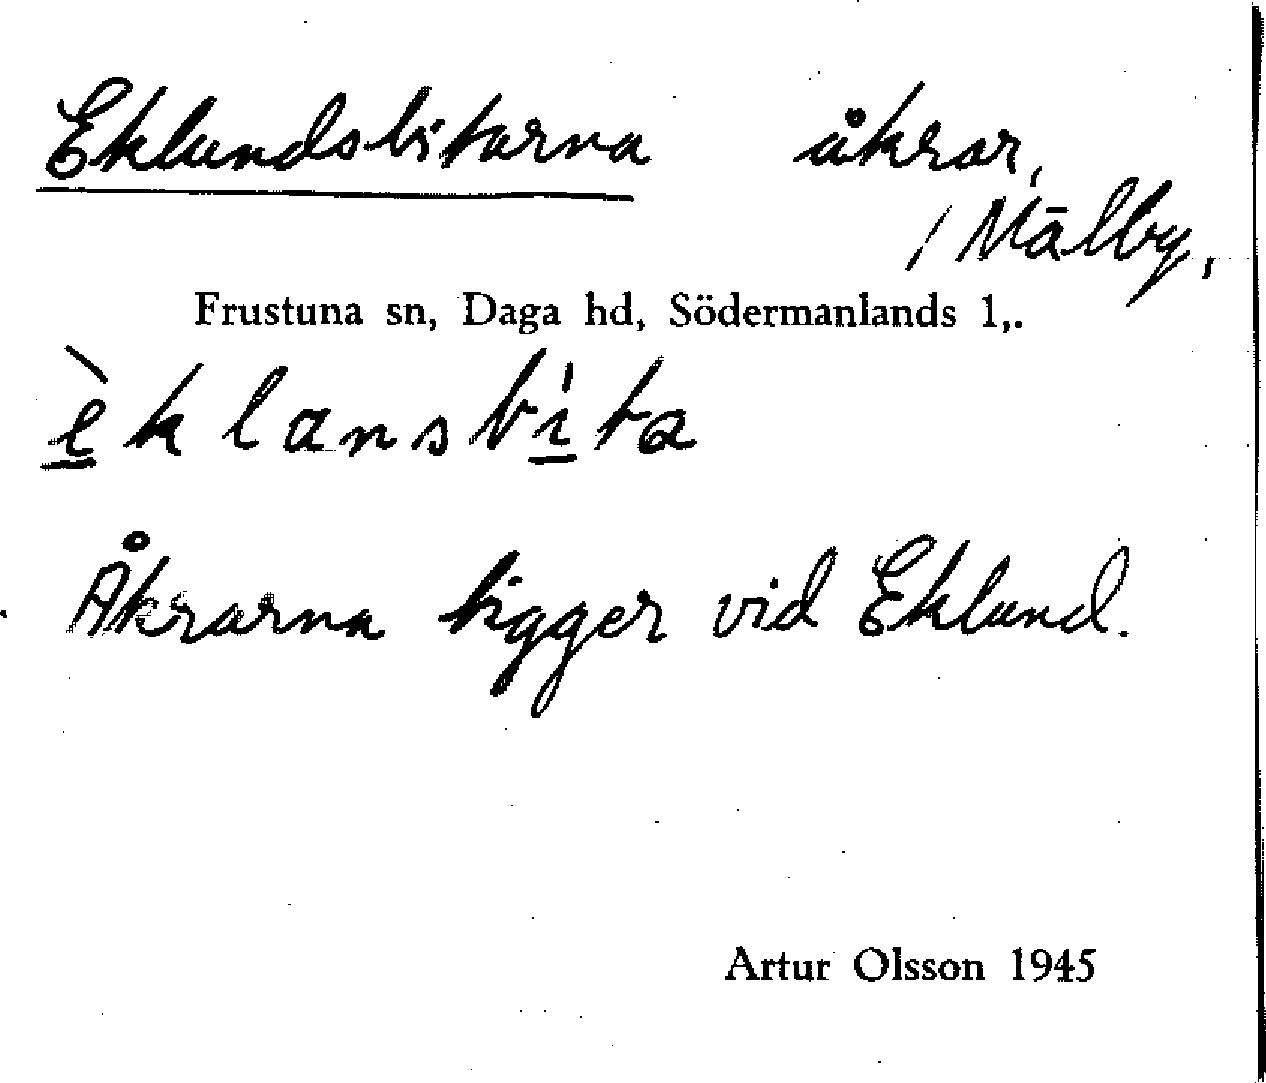 Eklundsbitarna åkrar,
/ Mälby,
Frustuna sn, Daga hd, Södermanlands l,.
èklansbita
Åkrarna ligger vid Eklund.
Artur Olsson 1945